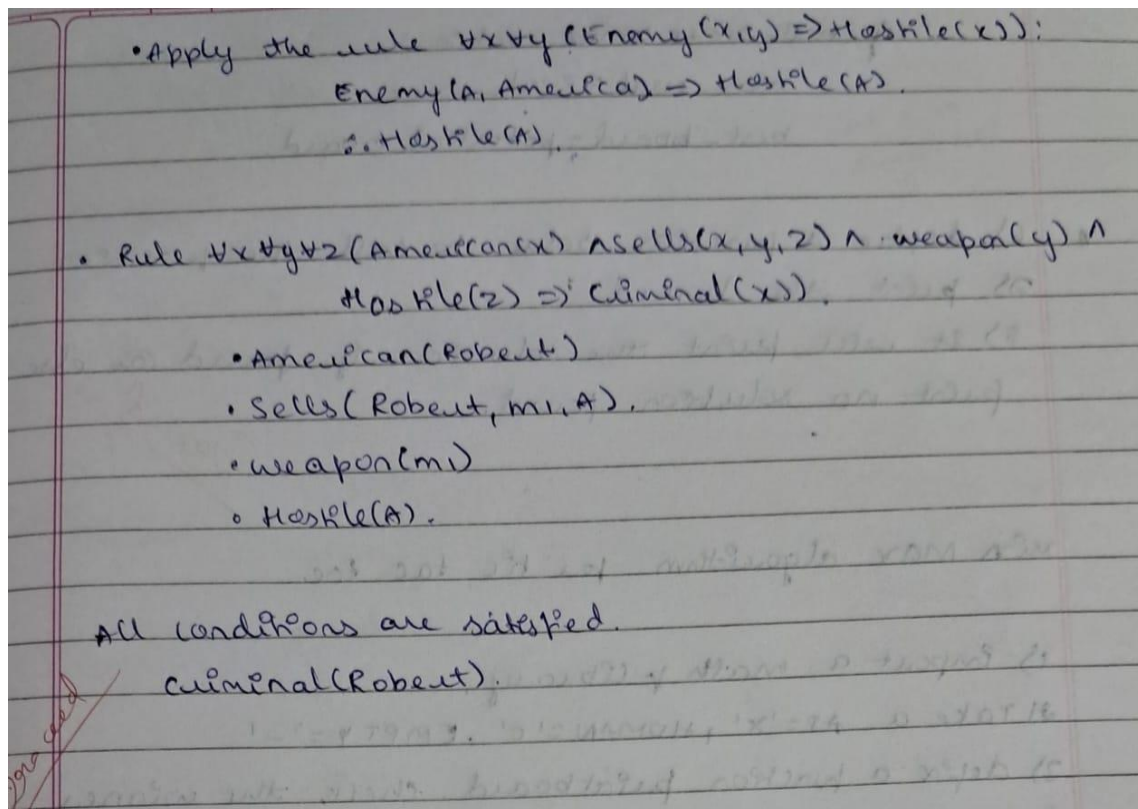 • Apply the rule ∀x∀y (Enemy(x,y) => Hostile(x)):
Enemy(A, America) => Hostile(A).
∴ Hostile(A).
• Rule ∀x∀y∀z(American(x) ∧ sells(x,y,z) ∧ weapon(y) ∧
Hostile(z) => Criminal(x)).
• American(Robert)
• Sells(Robert, m1, A).
• weapon(m1)
• Hostile(A).
All conditions are satisfied.
Criminal(Robert).